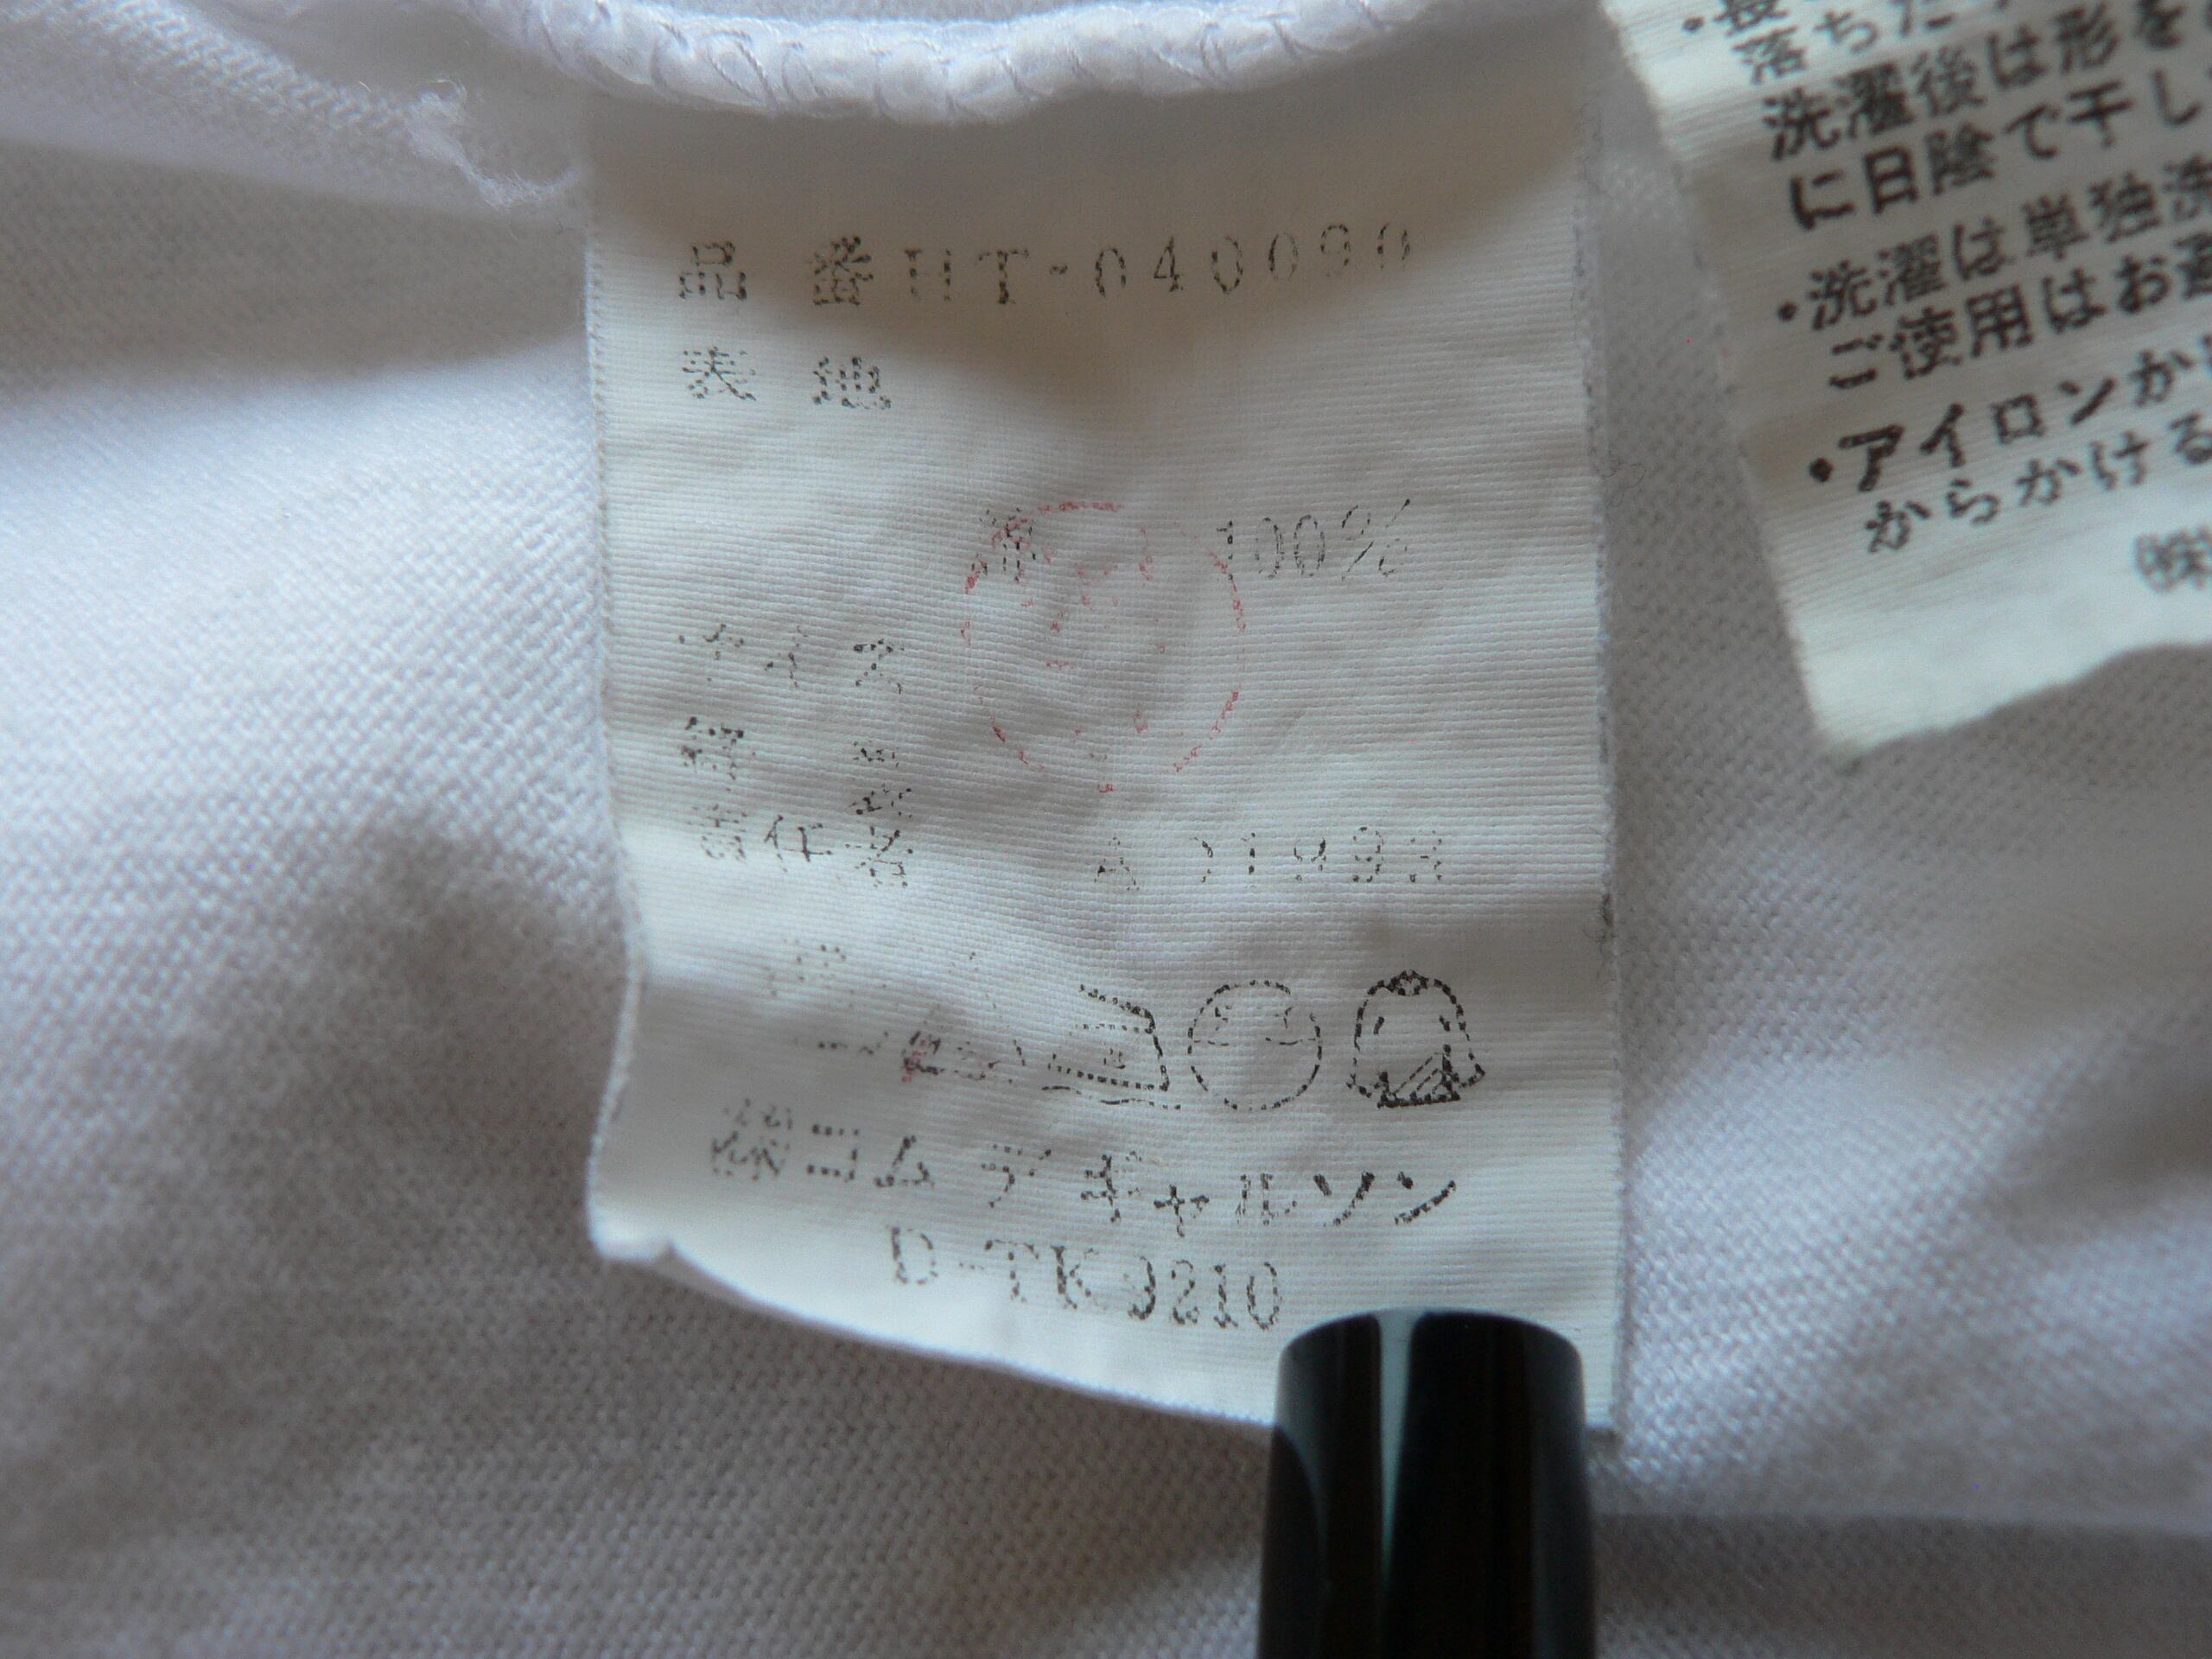 品 番HT-040090
表 地
綿 100%
サイズ
責任者
㈱コム デ ギャルソン
D-TK0210
落ちた
洗濯後は形を
に日陰で干し
・洗濯は単独洗
ご使用はお避
・アイロンか
からかける
㈱